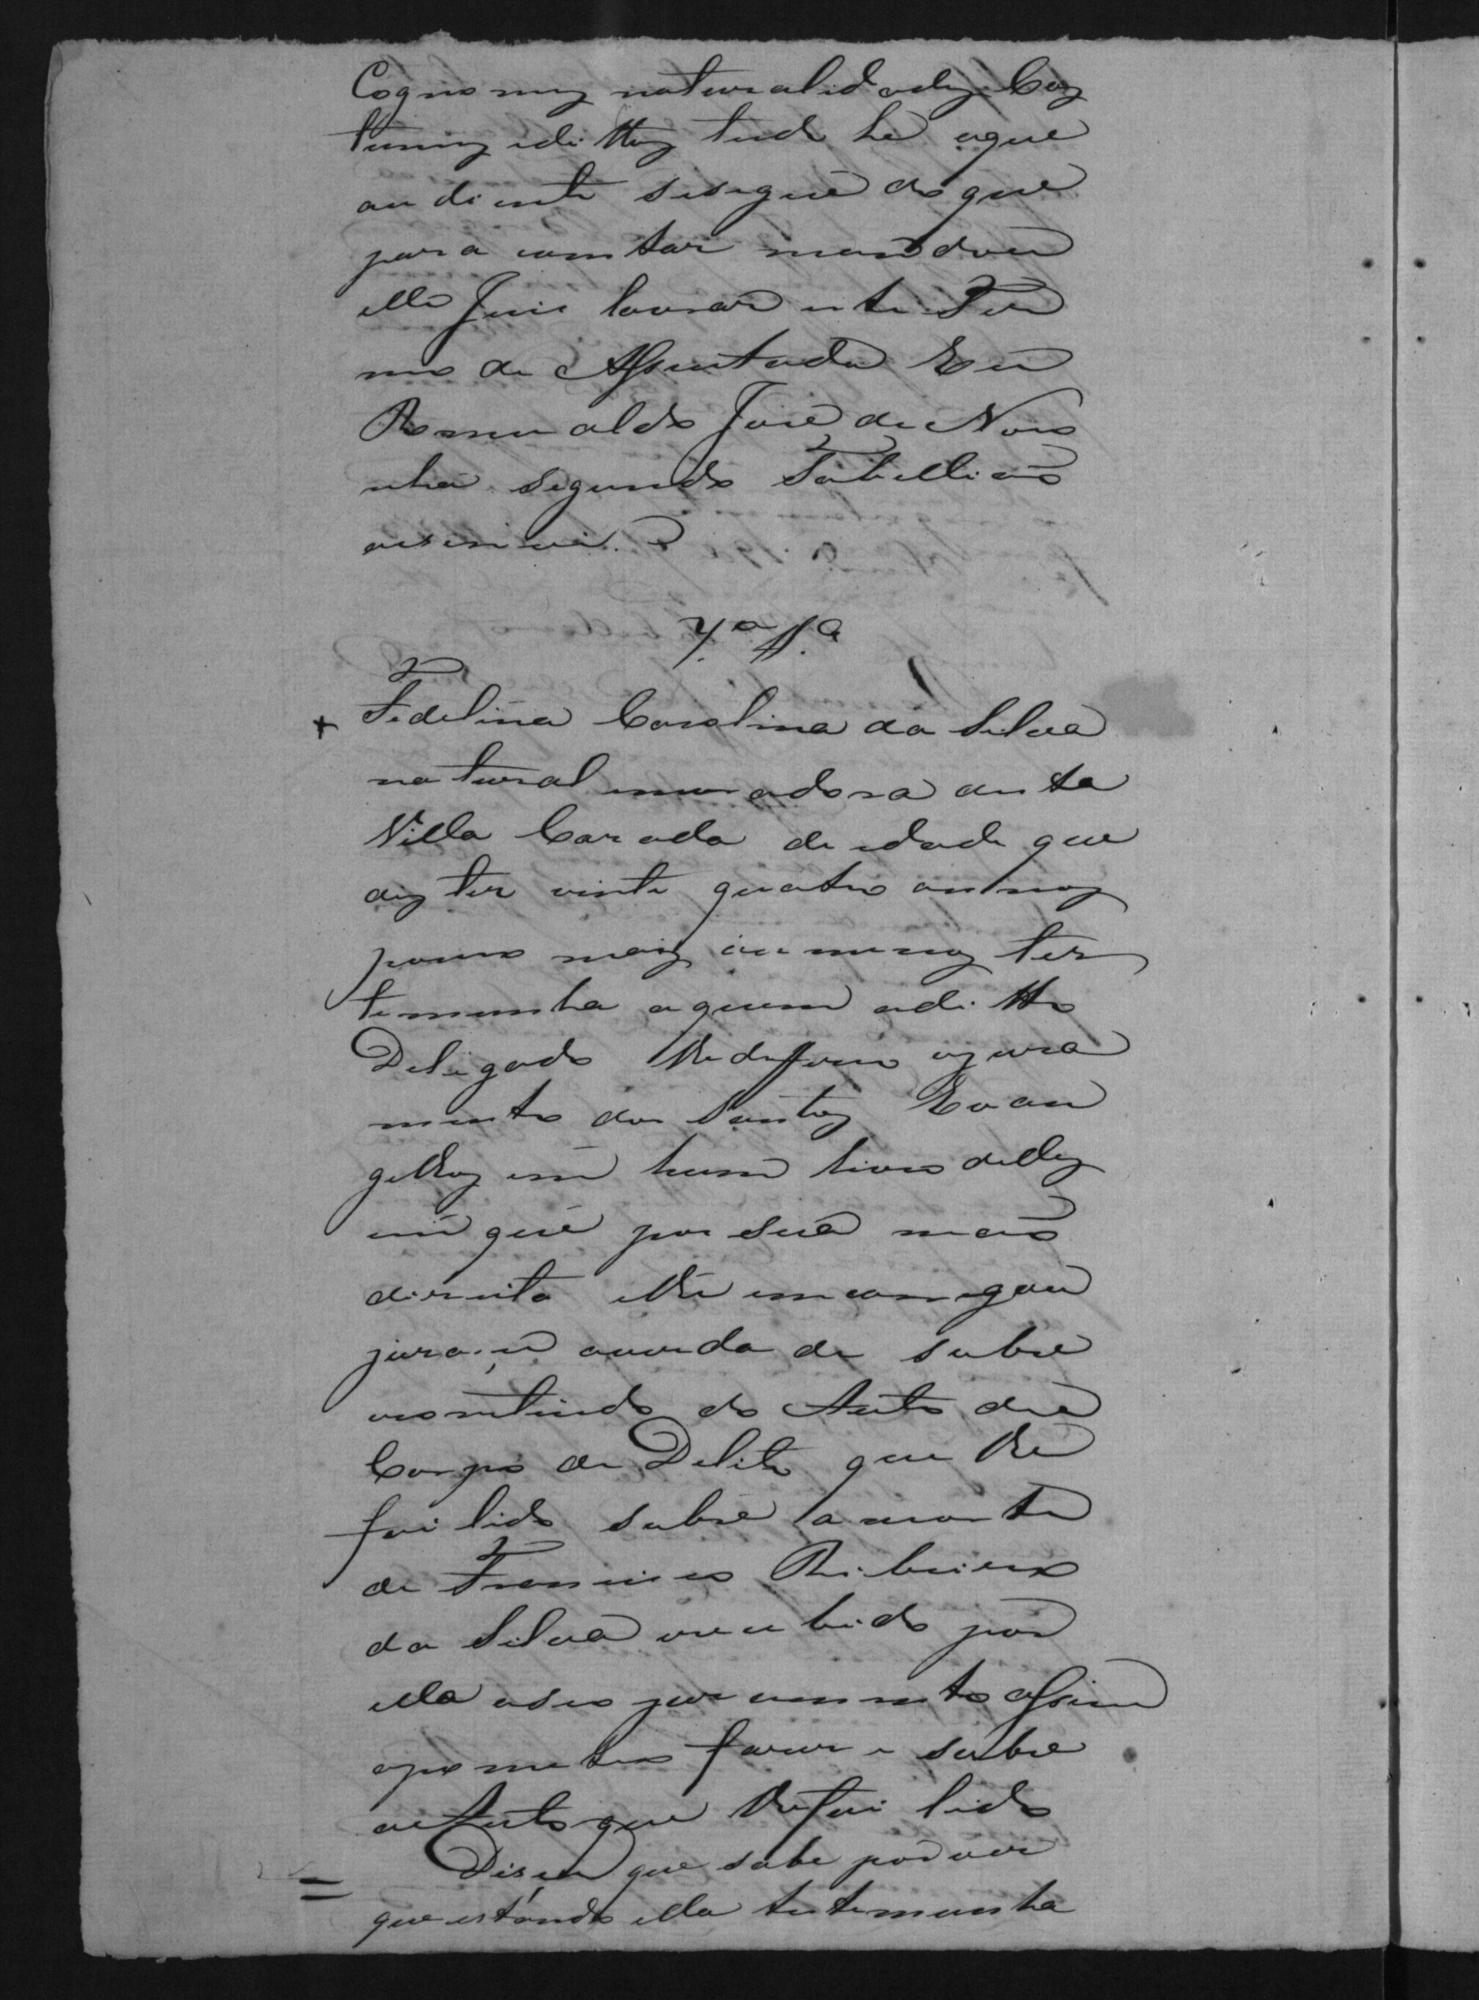 Cognomes naturalidades Cos
tumes edittos tudo hé oque
au diante sesegue do que
para constar mandou
elle Juis lavrar este Ter
mo de Assentada Eu
Romualdo José de Noro
nha segundo Tabelliaõ
oescrevi.
7ª tª
Fedelina Carolina da Silva
natural emoradora desta
Villa Casada de edade que
dis ter vinte quatro annos
pouco mais ou menos tes
temunha aquem oditto
Delegado lhe deffirio ojura
mento dos Santos Evan
gelhos em hum livro delles
em que pos sua maõ
direita elhe emcarregou
jura-se averdade sobre
ocontiudo do Auto de
Corpo de Delito que lhe
foi lido sobre a morte
de Francisco Ribeiro
da Silva recebido por
ella oseo juramento assim
oprometeo faser e sobre
oe Auto que lhe foi lido
Disse que sabe por ver
que estando ella testemunha